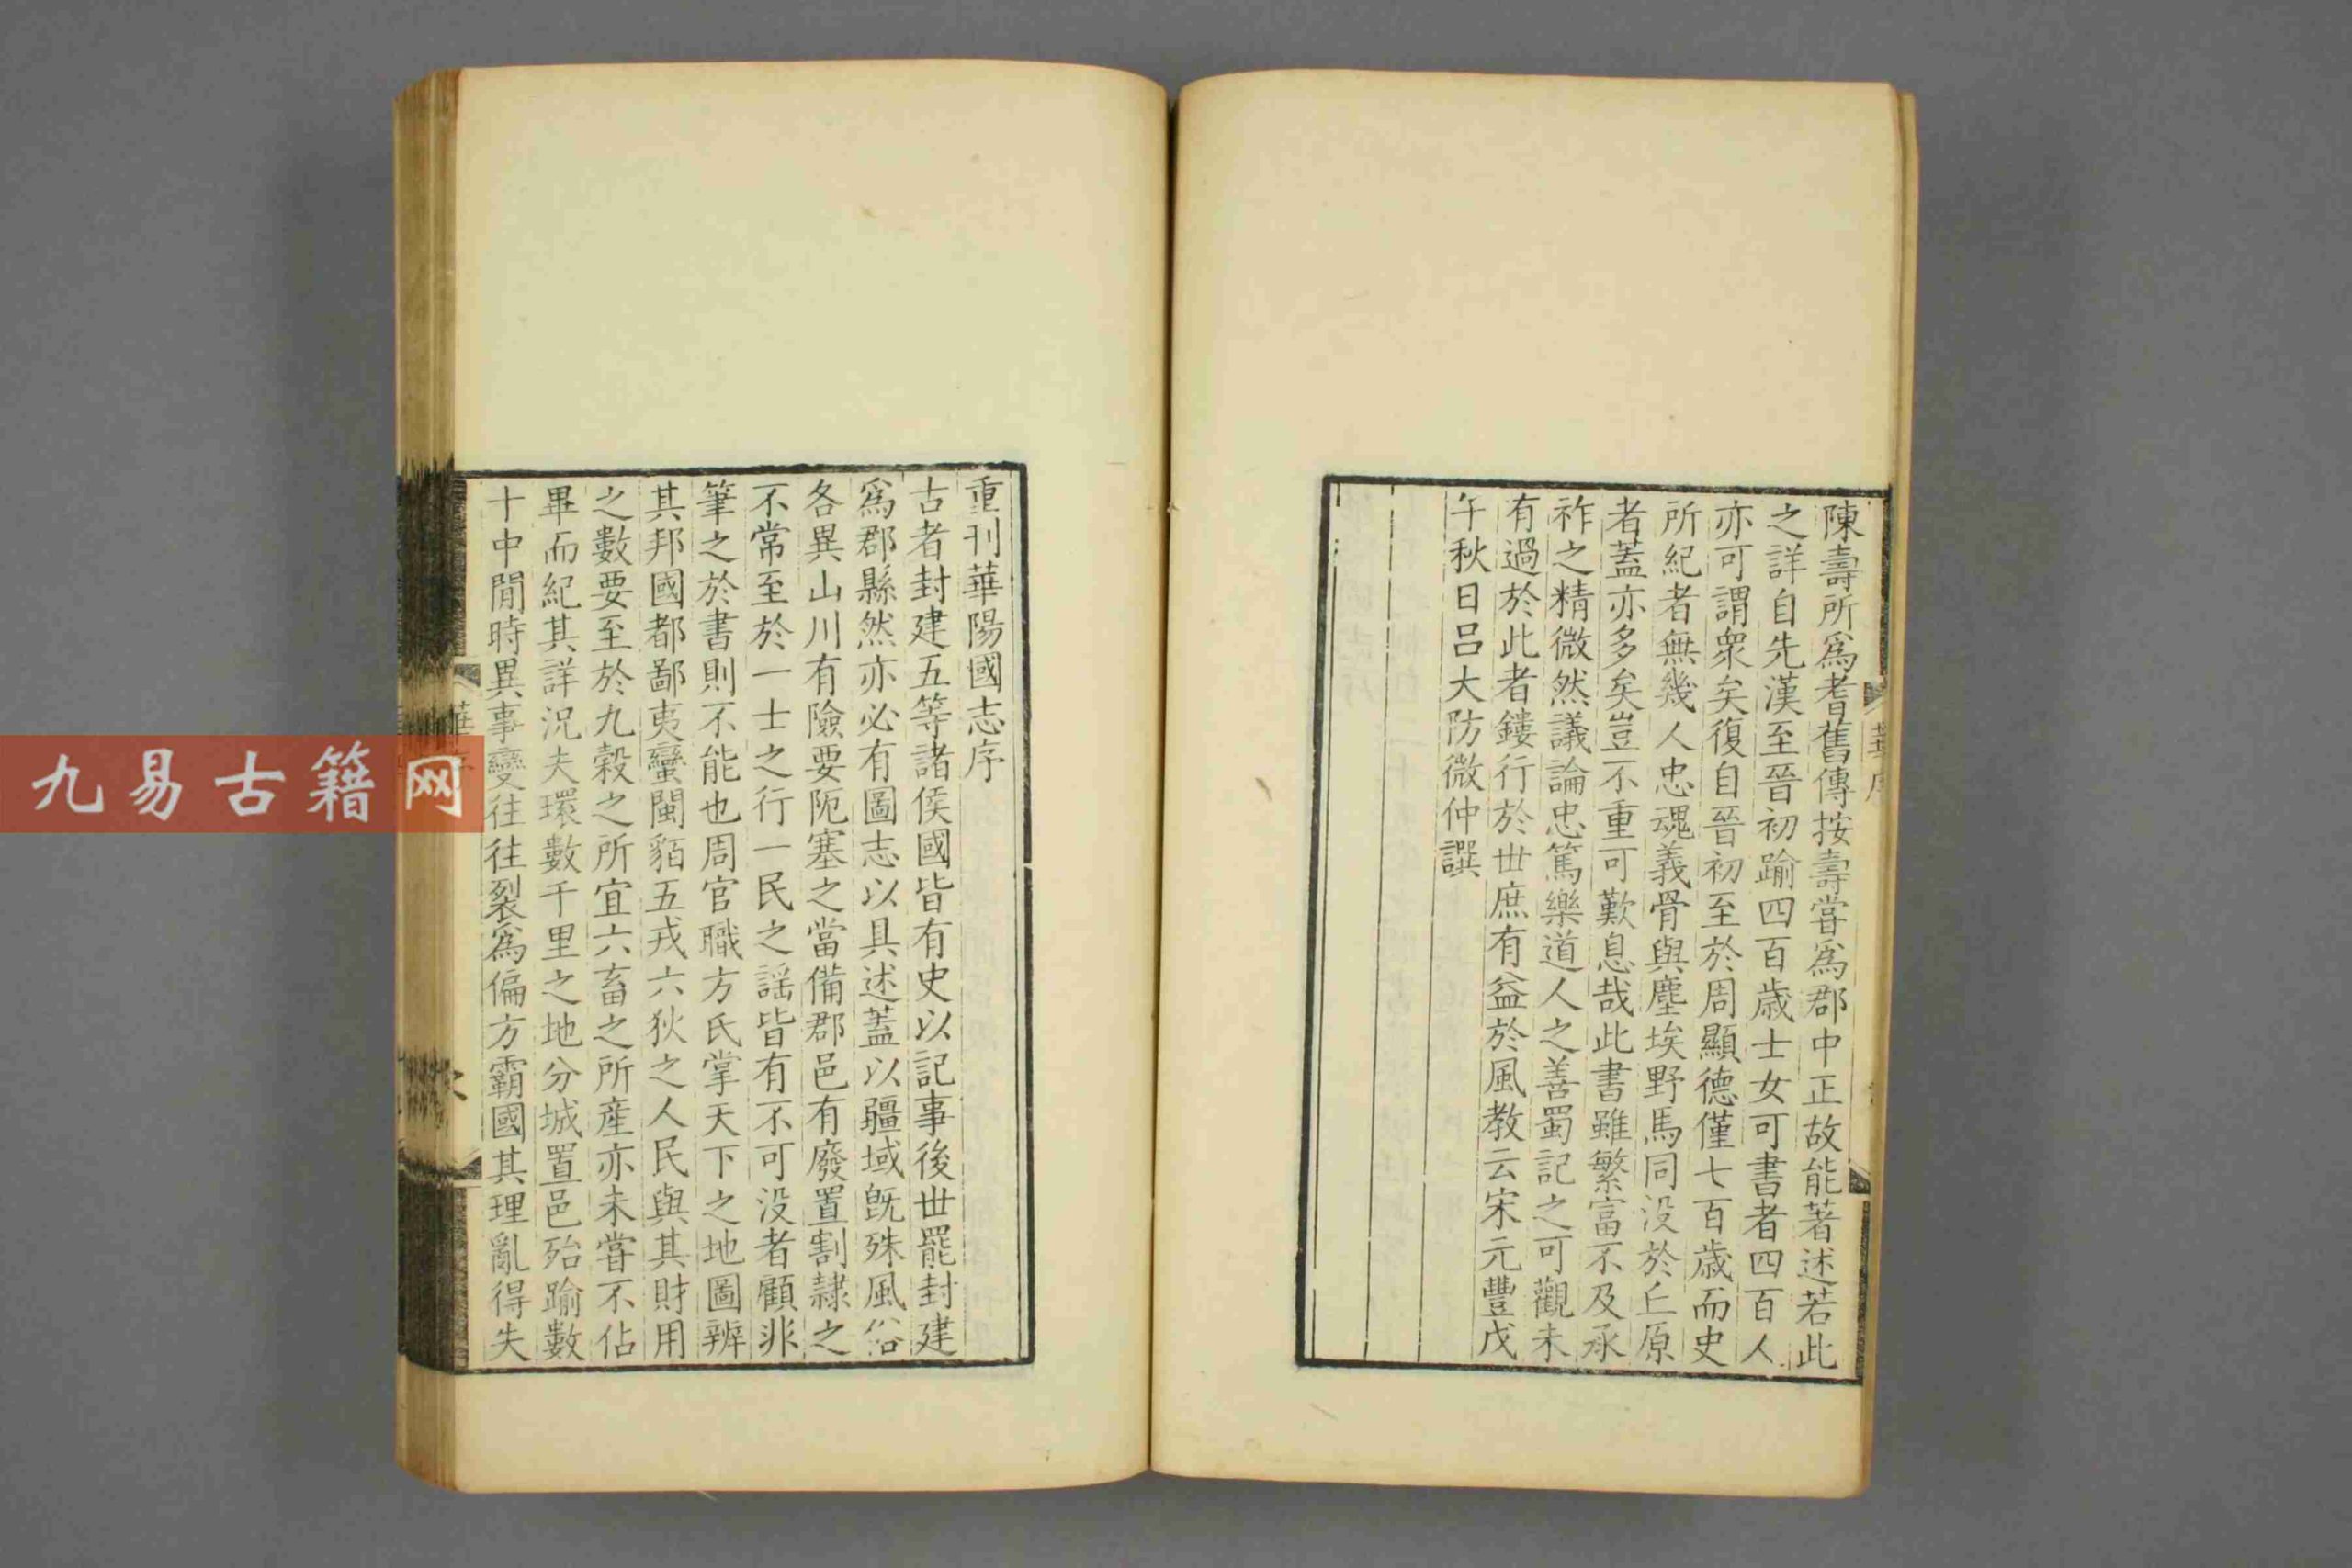 陳壽所爲耆舊傳按壽嘗爲郡中正故能著述若此
之詳自先漢至晉初踰四百歲士女可書者四百人
亦可謂衆矣復自晉初至於周顯德僅七百歲而史
所紀者無幾人忠魂義骨與塵埃野馬同没於丘原
者蓋亦多矣豈不重可歎息哉此書雖繁富不及承
祚之精微然議論忠篤樂道人之善蜀記之可觀未
有過於此者鏤行於世庶有益於風教云宋元豐戊
午秋日吕大防微仲譔
重刊華陽國志序
古者封建五等諸侯國皆有史以記事後世罷封建
爲郡縣然亦必有圖志以具述蓋以疆域旣殊風俗
各異山川有險要阨塞之當備郡邑有廢置割隷之
不常至於一士之行一民之謡皆有不可没者顧非
筆之於書則不能也周官職方氏掌天下之地圖辨
其邦國都鄙夷蠻閩貊五戎六狄之人民與其財用
之數要至於九穀之所宜六畜之所産亦未嘗不佔
畢而紀其詳況夫環數千里之地分城置邑殆踰數
十中閒時異事變往往裂爲偏方霸國其理亂得失
九易古籍网